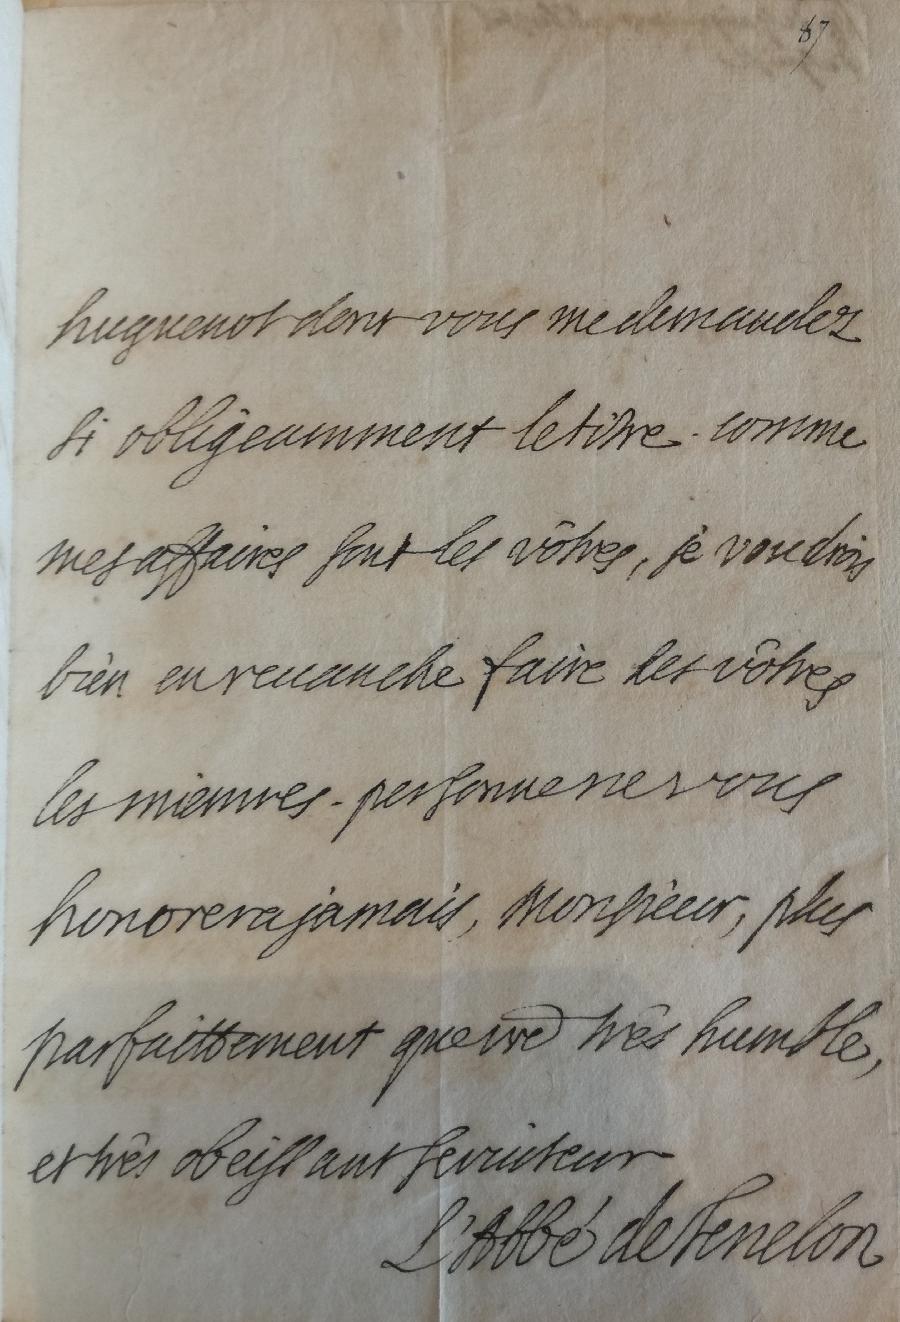 87
huguenot dont vous me demandez
si obligeamment le titre. comme
mes affaires sont les vôtres, je voudrois
bien en reuanche faire les vôtres
les miennes. personne ne vous
honorera jamais, Monsieur, plus
parfaittement que vre très humble,
et três obeissant seruiteur
L'Abbé de Fenelon